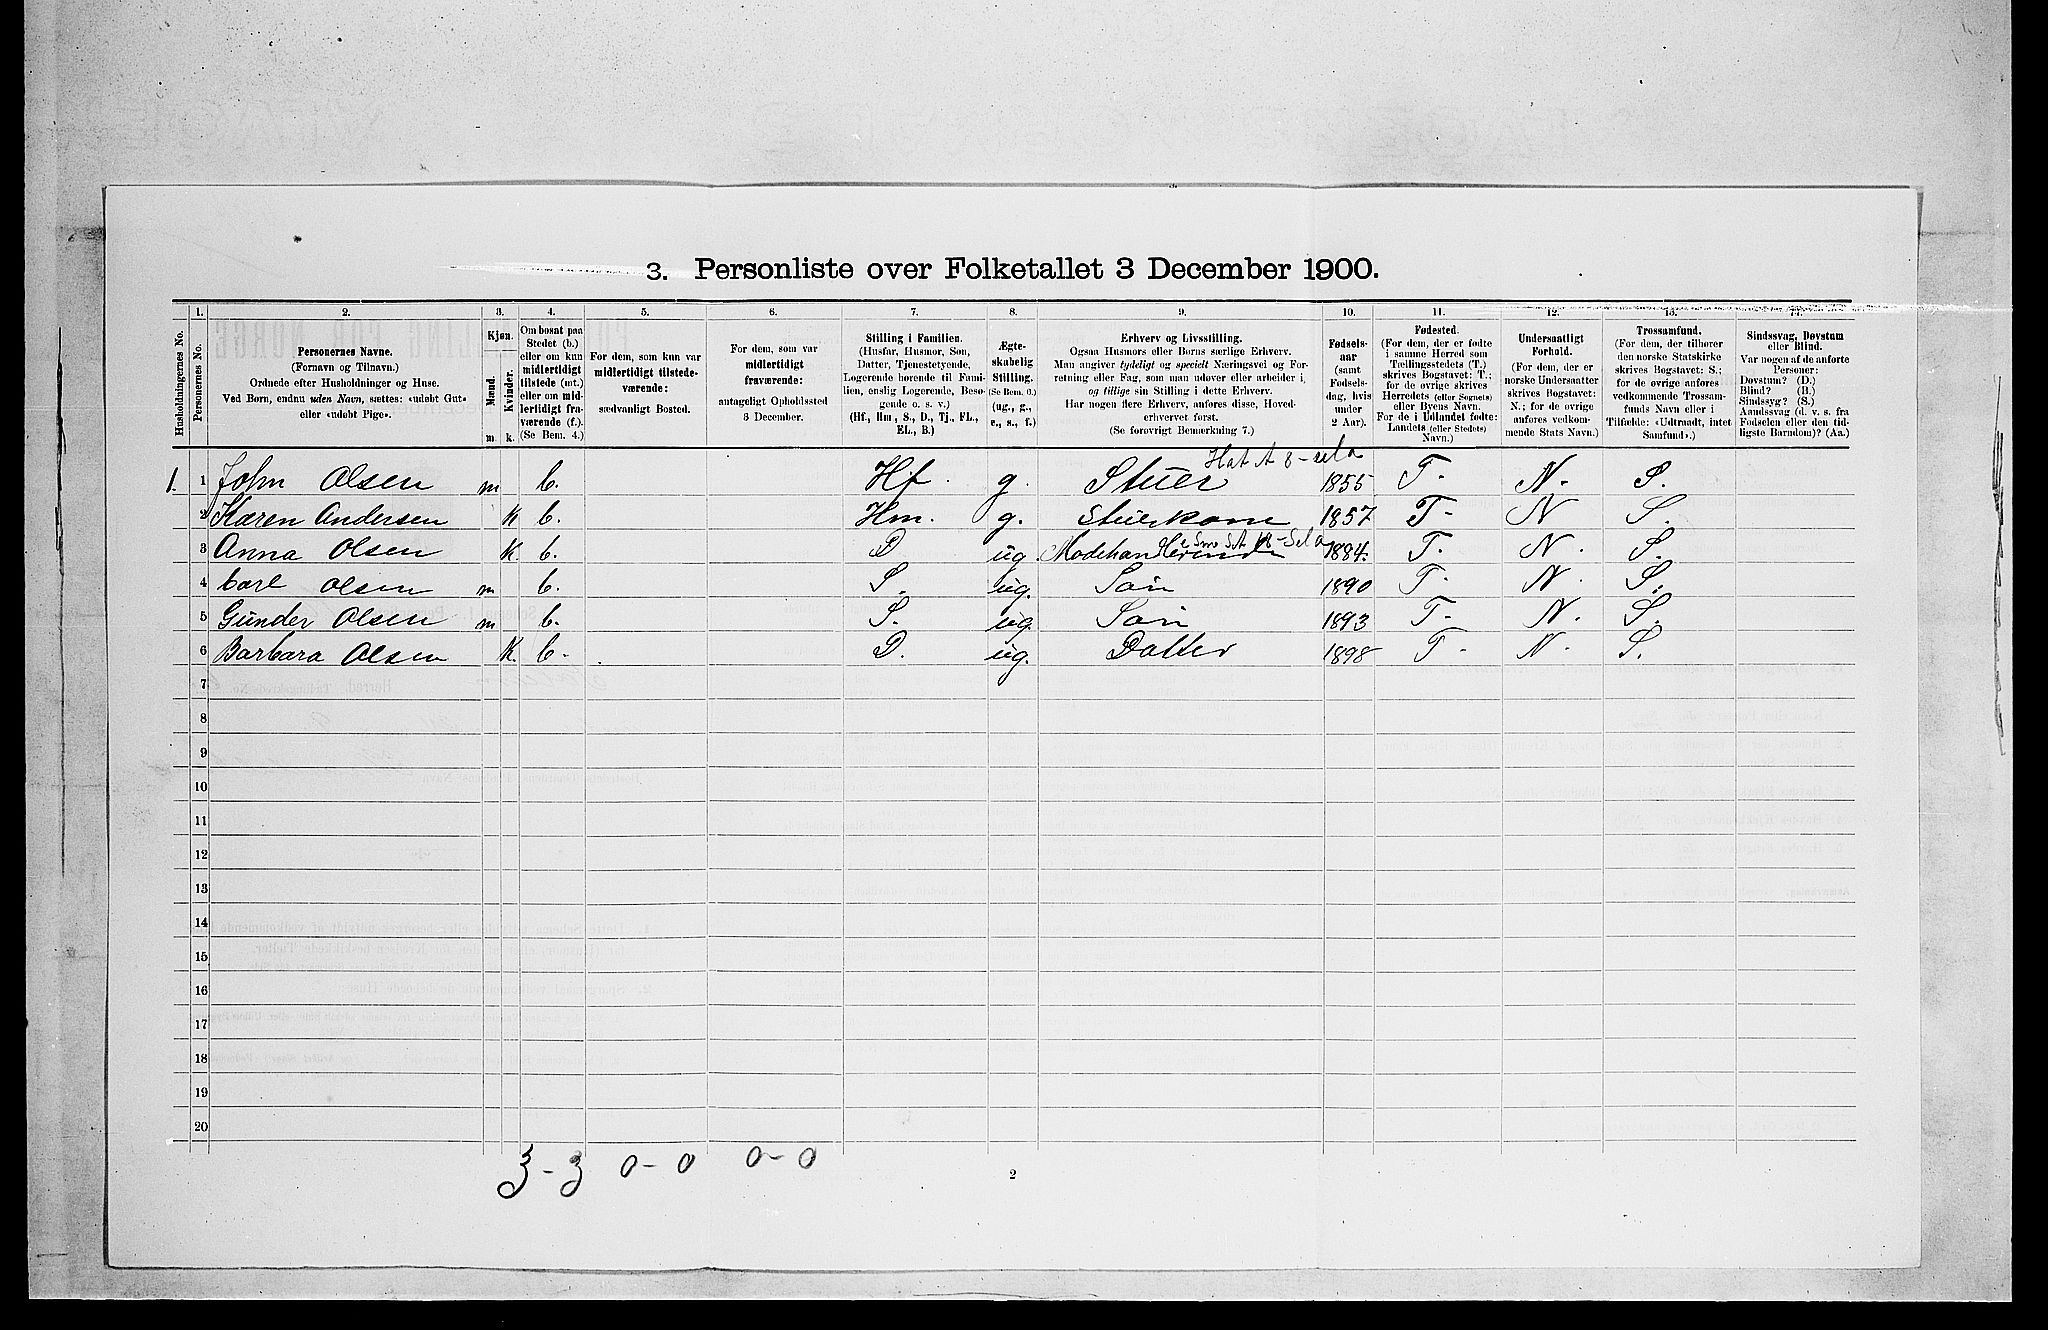 3. Personliste over Folketallet 3 December 1900.
Husholdningernes No.
1.
Personernes No.
2.
Personernes Navne.
(Fornavn og Tilnavn.)
Ordnede efter Husholdninger og Huse.
Ved Børn, endnu uden Navn, sættes: «udøbt Gut»
eller «udøbt Pige».
3.
Kjøn.
Mænd.
Kvinder.
m. k.
4.
Om bosat paa
Stedet (b.)
eller om kun
midlertidigt
tilstede (mt.)
eller om mid-
lertidigt fra-
værende (f.).
(Se Bem. 4.)
5.
For dem, som kun var
midlertidigt tilstede-
værende:
sædvanligt Bosted.
6.
For dem, som var
midlertidigt
fraværende:
antageligt Opholdssted
3 December.
7.
Stilling i Familien.
(Husfar, Husmor, Søn,
Datter, Tjenestetyende,
Logerende hørende til Fami-
lien, enslig Logerende, Besø-
gende o. s. v.)
(Hf., Hm., S., D., Tj., FL.,
EL., B.)
8.
Ægte-
skabelig
Stilling.
(Se Bem. 6.)
(ug., g.,
e., s., f.)
9.
Erhverv og Livsstilling.
Ogsaa Husmors eller Børns særlige Erhverv.
Man angiver tydeligt og specielt Næringsvei og For-
retning eller Fag, som man udøver eller arbeider i,
og tillige sin Stilling i dette Erhverv.
Har nogen flere Erhverv, anføres disse, Hoved-
erhvervet først.
(Se forøvrigt Bemerkning 7.)
10.
Fødsels-
aar
(samt
Fødsels-
dag, hvis
under
2 Aar).
11.
Fødested.
(For dem, der er fødte
i samme Herred som
Tællingsstedets (T.)
skrives Bogstavet: T.;
for de øvrige skrives
Herredets (eller Sognets)
eller Byens Navn.
For de i Udlandet fødte:
Landets (eller Stedets)
Navn.)
12.
Undersaatligt
Forhold.
(For dem, der er
norske Undersaatter
skrives Bogstavet:
N.; for de øvrige
anføres vedkom-
mende Stats Navn.)
13.
Trossamfund.
(For dem, der tilhører
den norske Statskirke
skrives Bogstavet: S.;
for de øvrige anføres
vedkommende Trossam-
funds Navn eller i
Tilfælde: «Udtraadt, intet
Samfund».)
14.
Sindssvag, Døvstum
eller Blind.
Var nogen af de anførte
Personer:
Døvstum? (D.)
Blind? (B.)
Sindssyg? (S.)
Aandssvag (d. v. s. fra
Fødselen eller den tid-
ligste Barndom)? (Aa.)
1. 1 John Olsen m b. Hf. g. Stuer 1855 T. N. S.
2 Karen Andersen k b. Hm. g. Stuerkone 1857 T. N S.
3 Anna Olsen k. b. D ug. Modehandlerinde 1884. T. N. S.
4 Carl Olsen m b. S. ug. Søn 1890 T. N. S.
5 Gunder Olsen m b. S. ug. Søn 1893 T. N. S.
6 Barbara Olsen k. b. D. ug. Datter 1898 T. N. S.
7
8
9
10
11
12
13
14
15
16
17
18
19
20
3 - 3 0 - 0 0 - 0
2